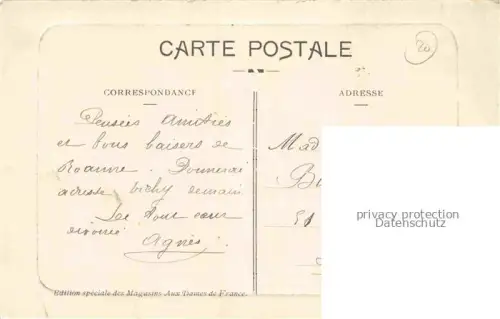 CARTE POSTALE
20
CORRESPONDANCE
ADRESSE
Pensées amitiés
et bons baisers de
Roanne. Donnerai
adresse Vichy demain
De tout cœur
Agnès.
Mad
51
privacy protection
Datenschutz
Edition spéciale des Magasins Aux Dames de France.